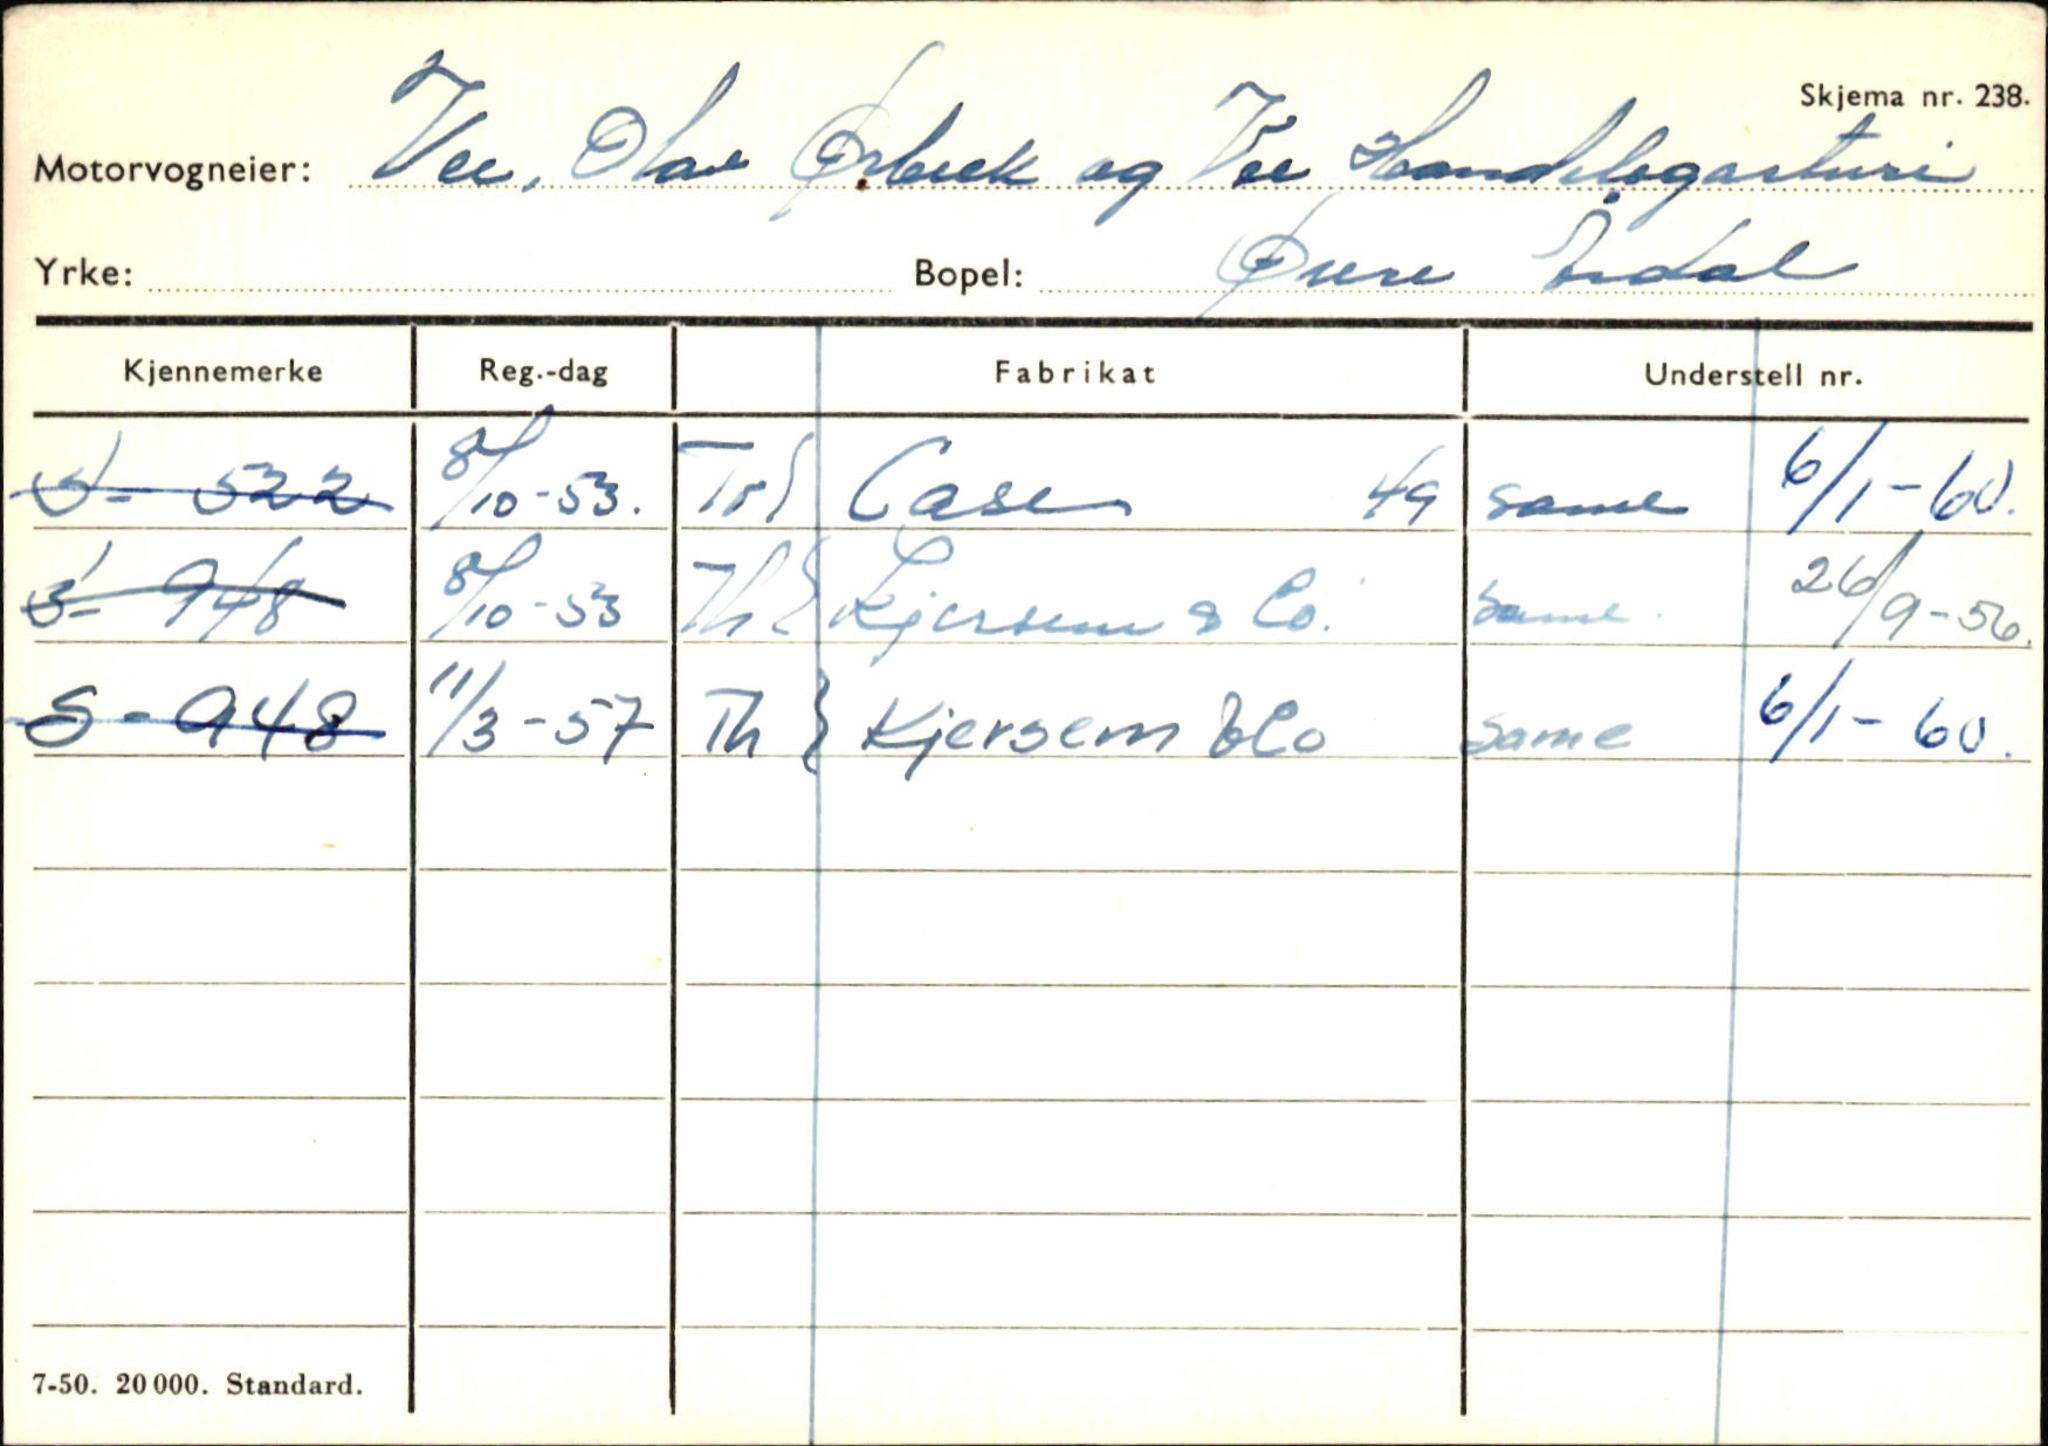 Skjema nr. 238.
Motorvogneier: Vee, Olav Ørbeck og Vee Handelsgartneri
Yrke: Bopel: Øvre Årdal
Kjennemerke Reg.-dag Fabrikat Understell nr.
S- 522 8/10-53. Tr} Case 49 same 6/1-60.
S- 948 8/10-53 Th} Kjersem & Co. same. 26/9-56.
S-948 11/3-57 Th} Kjersem & Co same 6/1-60.
7-50. 20 000. Standard.